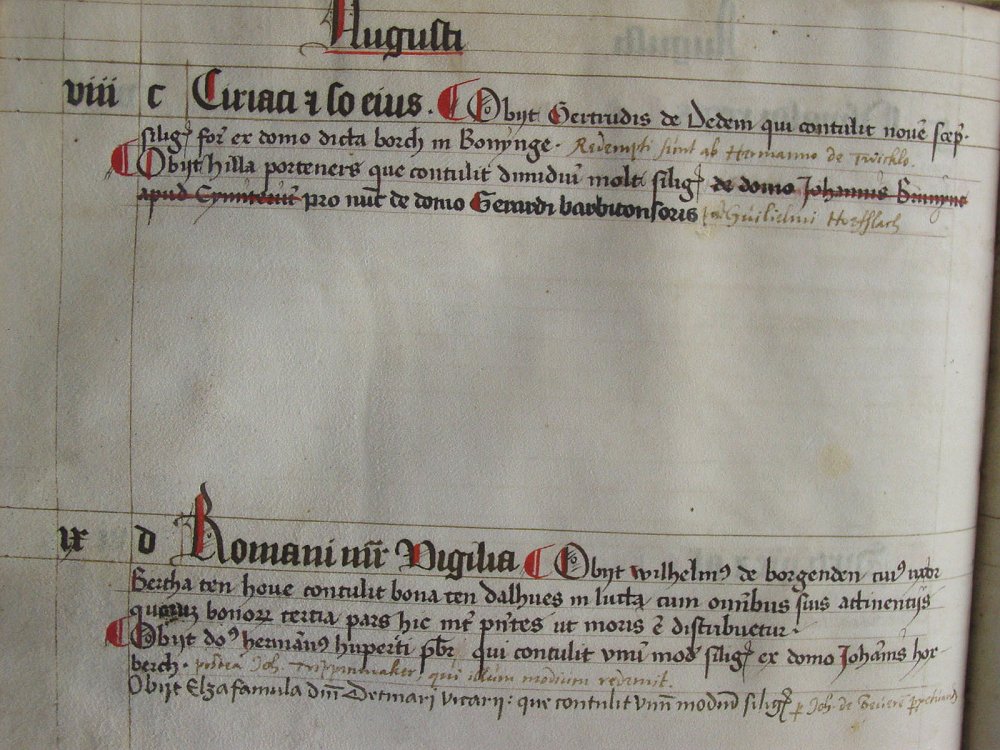 Augusti
viii c Ciriaci ⁊ so eius. Obijt Gertrudis de Dedem qui contulit nouē scep̄.
silig̃ for̄ ex domo dicta borch in Bonynge. Redempti sunt ab Hermanno de Twicklo.
Obijt hilla porteners que contulit dimidiū molt silig̃ de domo Johannis
apud pro nūc de domo Gerardi barbitonsoris Guilielmi
ix d Romani mr̄ Vigilia Obijt wilhelmꝰ de borgenden cuiꝰ uxor
Bertha ten hove contulit bona ten dalhues in lutta cum omnibus suis attinentijs
quoruꝫ bonoꝝ tertia pars hic int̄ pn̄tes ut moris ē distribuetur.
Obijt doꝰ hermānꝰ huperti pb̄r qui contulit vnū mod̄ silig̃ ex domo Johānis hor-
berch. postea Joh. Trippenmaker, qui illum modium redemit.
Obijt Elza famula dn̄i Detmari vicarij: que contulit vnū modiū silig̃ Joh. de